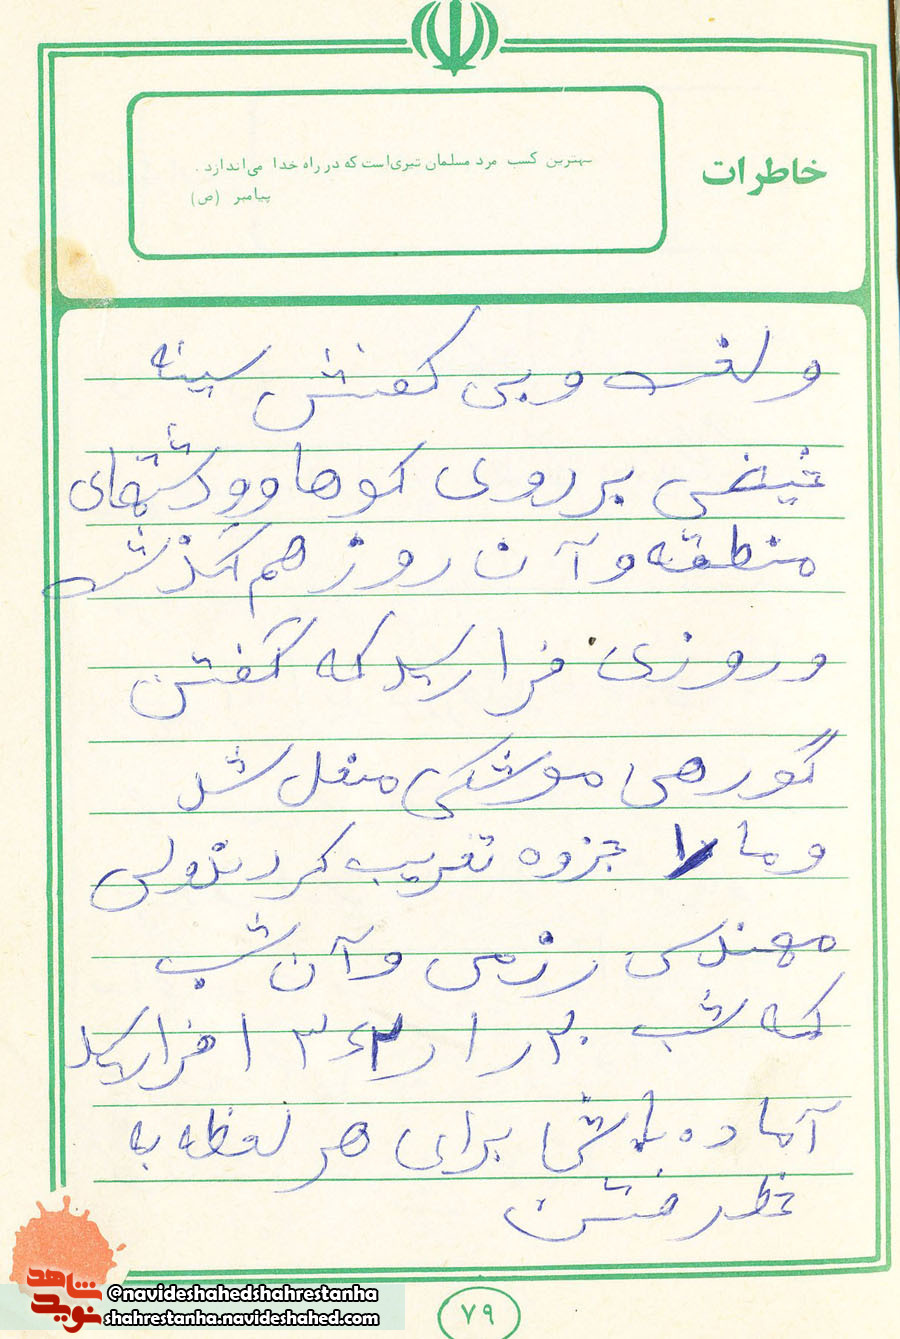 خاطرات
بهترین کسب مرد مسلمان تیری است که در راه خدا می‌اندازد .
پیامبر (ص)
و لخت و بی کفش سینه
خیزمی بر روی کوها وودشتهای
منطقه و آن روز هم گذشت
و روزی فرا رسید که گفتن
گورهی موشکی منحل شد
و ما را جزوه تخریب کردند ولی
مهندسی رزمی و آن شب
که شب ۲۰ر۱ر۱۳۶۲ فرارسید
آماده باش برای هر لحظه به
خط رفتن
شاهد
نوید
@navideshahedshahrestanha
shahrestanha.navideshahed.com
۷۹